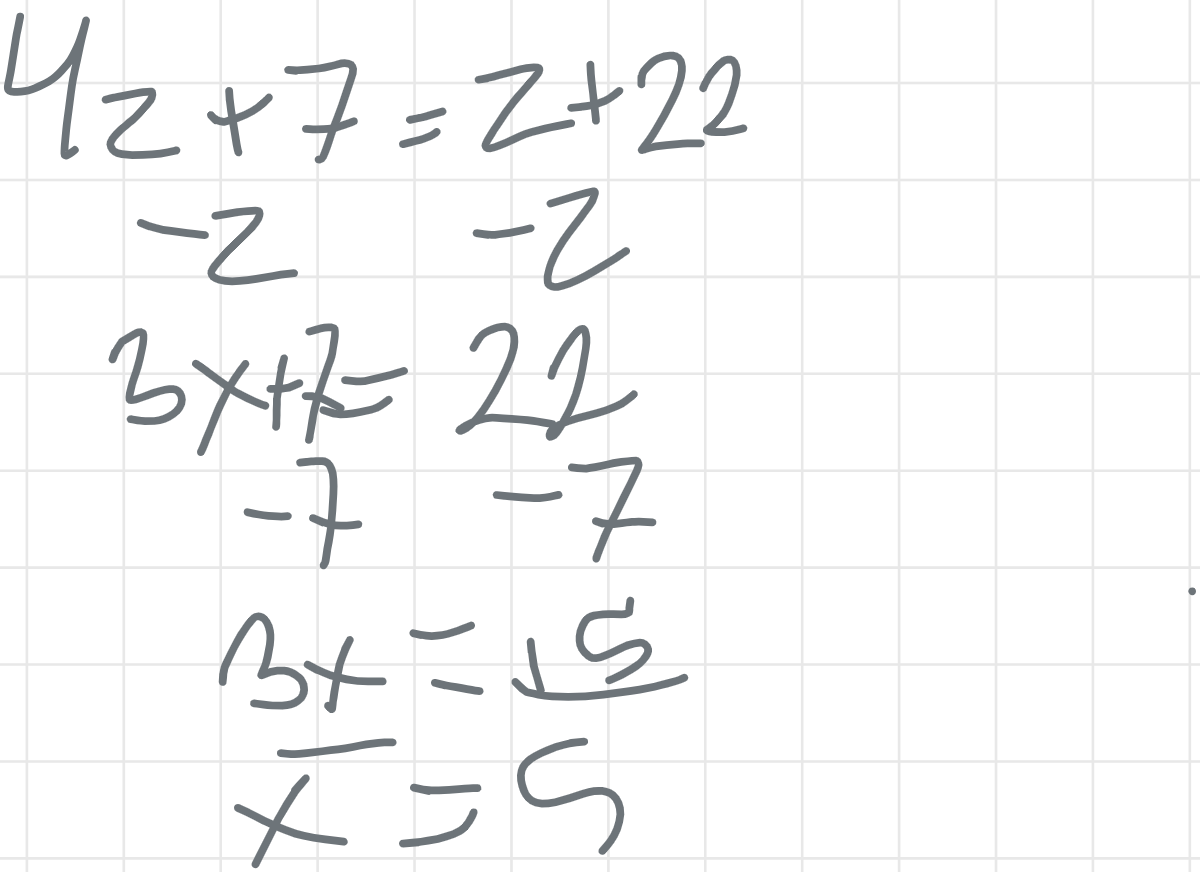 4z + 7 = z + 22
- z - z
3x + 7 = 22
- 7 - 7
3x = 15
x = 5